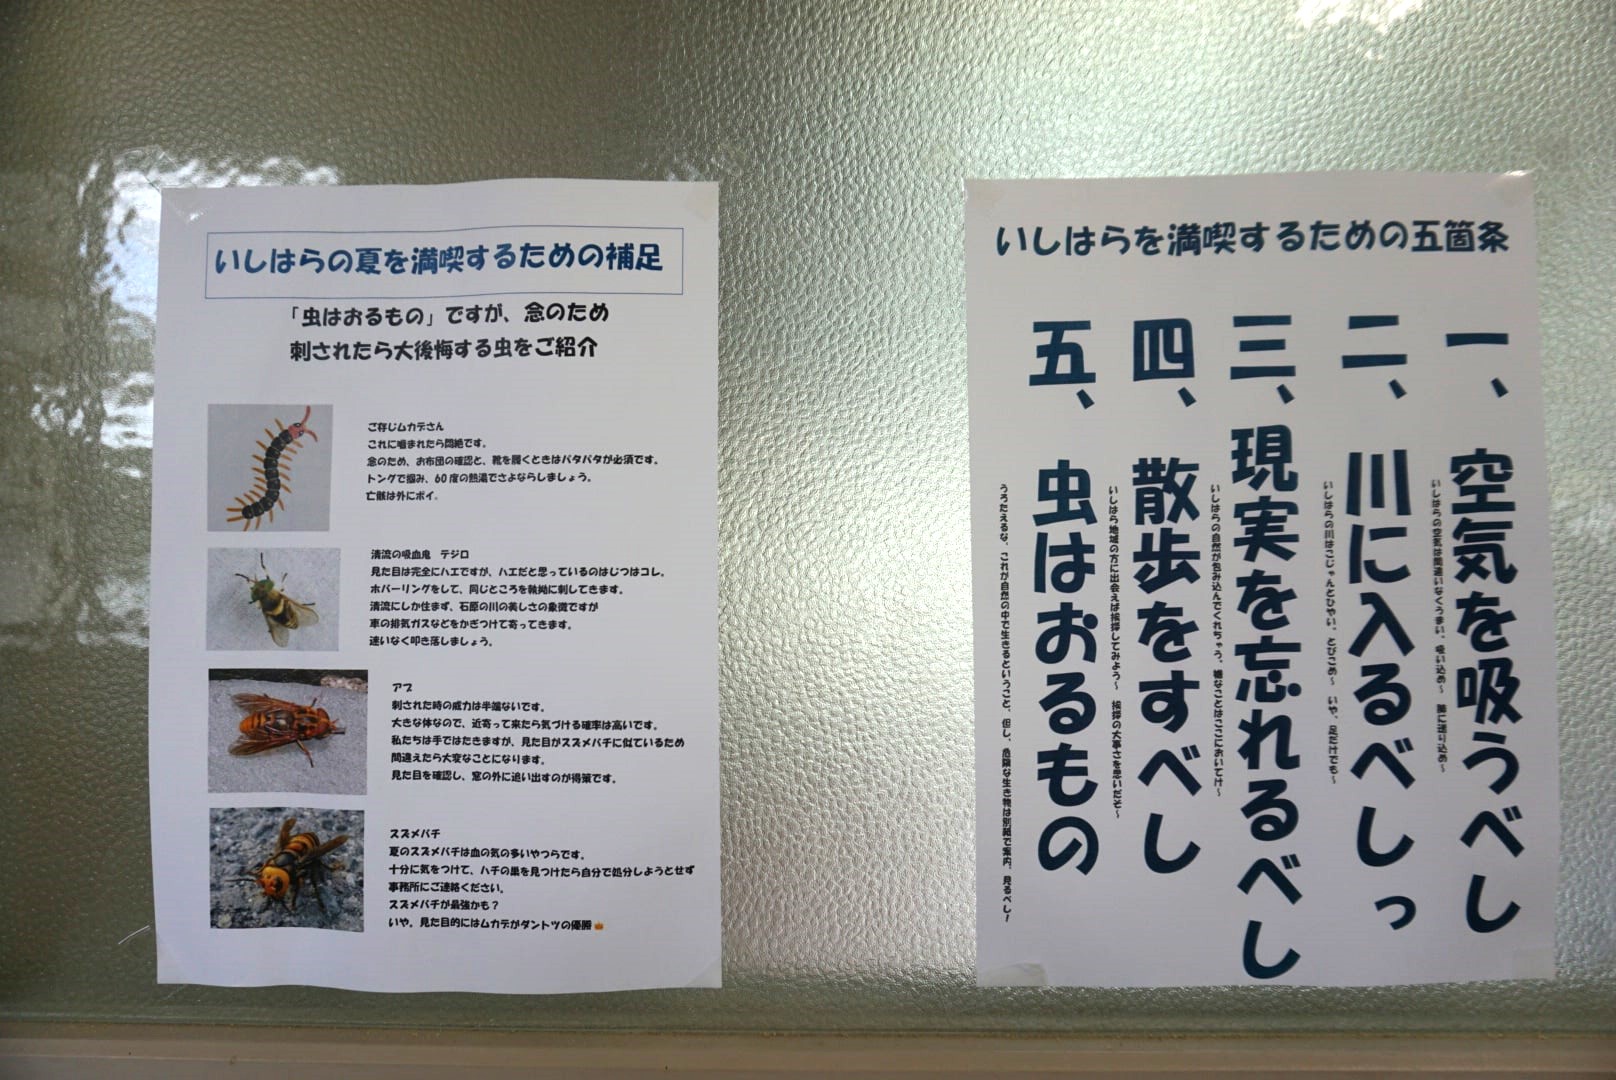 いしはらの夏を満喫するための補足
「虫はおるもの」ですが、念のため
刺されたら大後悔する虫をご紹介
ご存じムカデさん
これに噛まれたら悶絶です。
念のため、お布団の確認と、靴を履くときはパタパタが必須です。
トングで掴み、60度の熱湯でさよならしましょう。
亡骸は外にポイ。
清流の吸血鬼　テジロ
見た目は完全にハエですが、ハエだと思っているのはじつはコレ。
ホバーリングをして、同じところを執拗に刺してきます。
清流にしか住まず、石原の川の美しさの象徴ですが
車の排気ガスなどをかぎつけて寄ってきます。
迷いなく叩き落しましょう。
アブ
刺された時の威力は半端ないです。
大きな体なので、近寄って来たら気づける確率は高いです。
私たちは手ではたきますが、見た目がスズメバチに似ているため
間違えたら大変なことになります。
見た目を確認し、窓の外に追い出すのが得策です。
スズメバチ
夏のスズメバチは血の気の多いやつらです。
十分に気をつけて、ハチの巣を見つけたら自分で処分しようとせず
事務所にご連絡ください。
スズメバチが最強かも？
いや。見た目的にはムカデがダントツの優勝👑
いしはらを満喫するための五箇条
一、空気を吸うべし
いしはらの空気は間違いなくうまい。吸い込め～　肺に送り込め～
二、川に入るべしっ
いしはらの川はこじゃんとひやい。とびこめ～　いや、足だけでも～
三、現実を忘れるべし
いしはらの自然が包み込んでくれちゃう。嫌なことはここにおいてけ～
四、散歩をすべし
いしはら地域の方に出会えば挨拶してみよう～　挨拶の大事さを思いだぞ～
五、虫はおるもの
うろたえるな、これが自然の中で生きるということ。但し、危険な生き物は別紙で案内。見るべし！